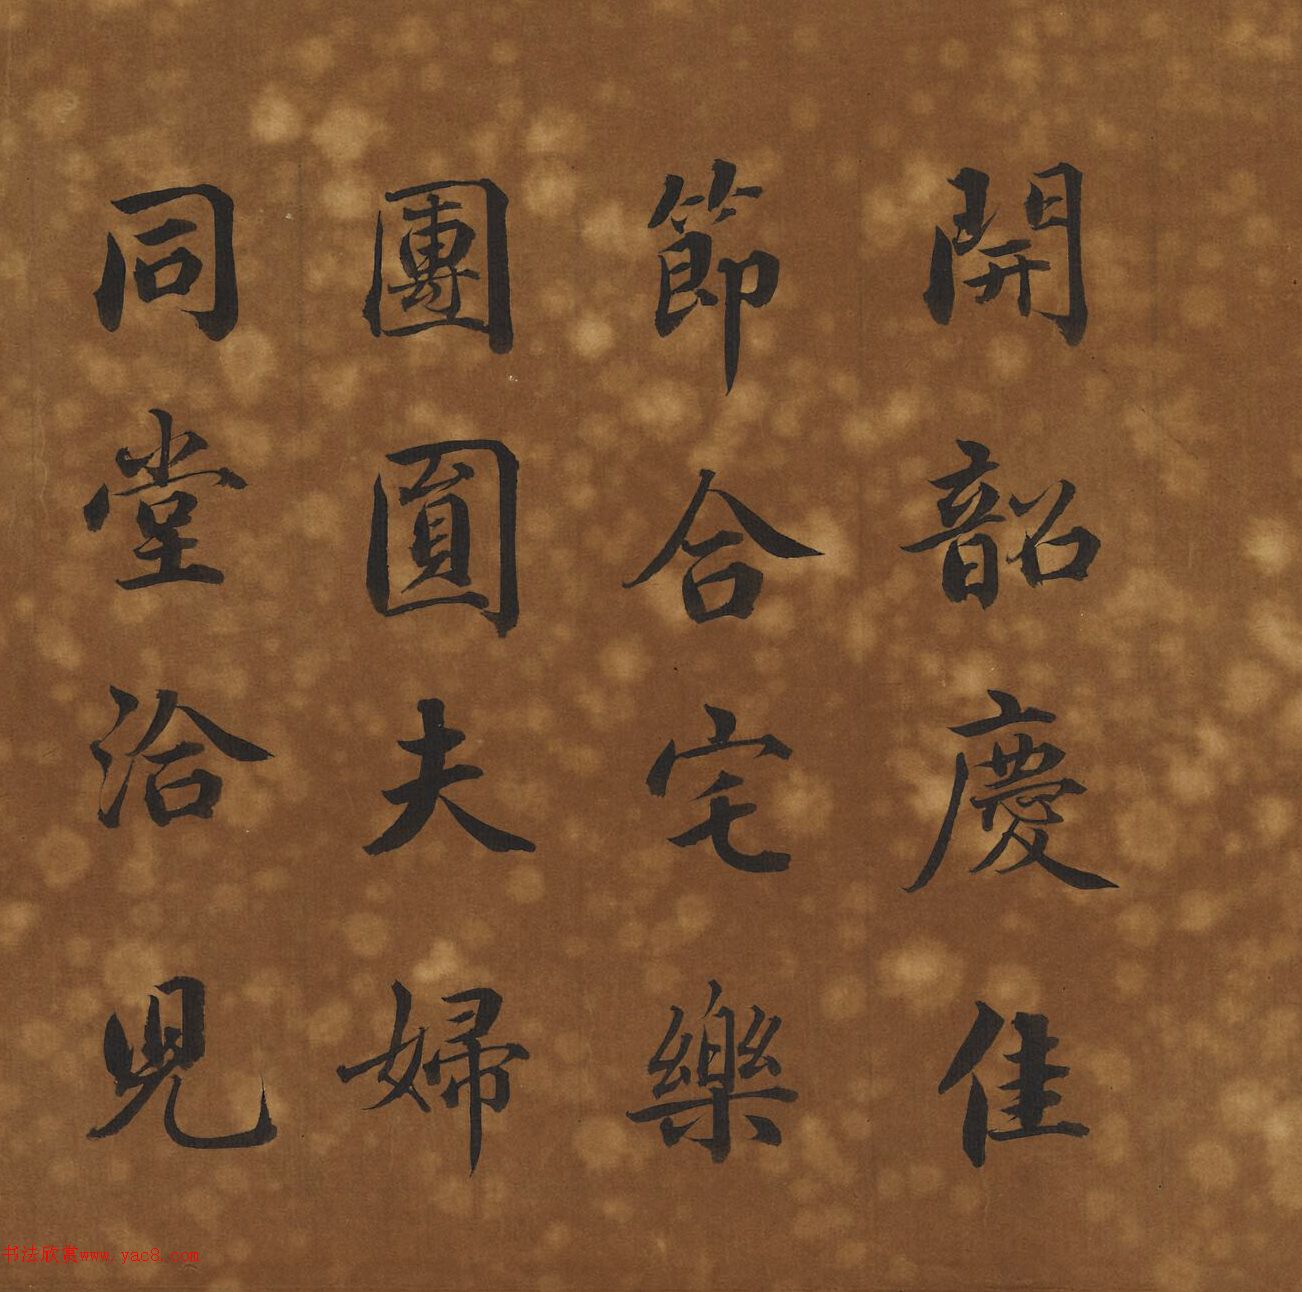 開韶慶佳
節合宅樂
團圓夫婦
同堂洽兒
书法欣赏www.yac8.com